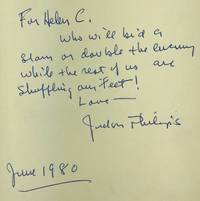 For Helen C.
Who will bid a
slam or double the enemy
while the rest of us are
shuffling our feet!
Love—
Judson Philips
June 1980